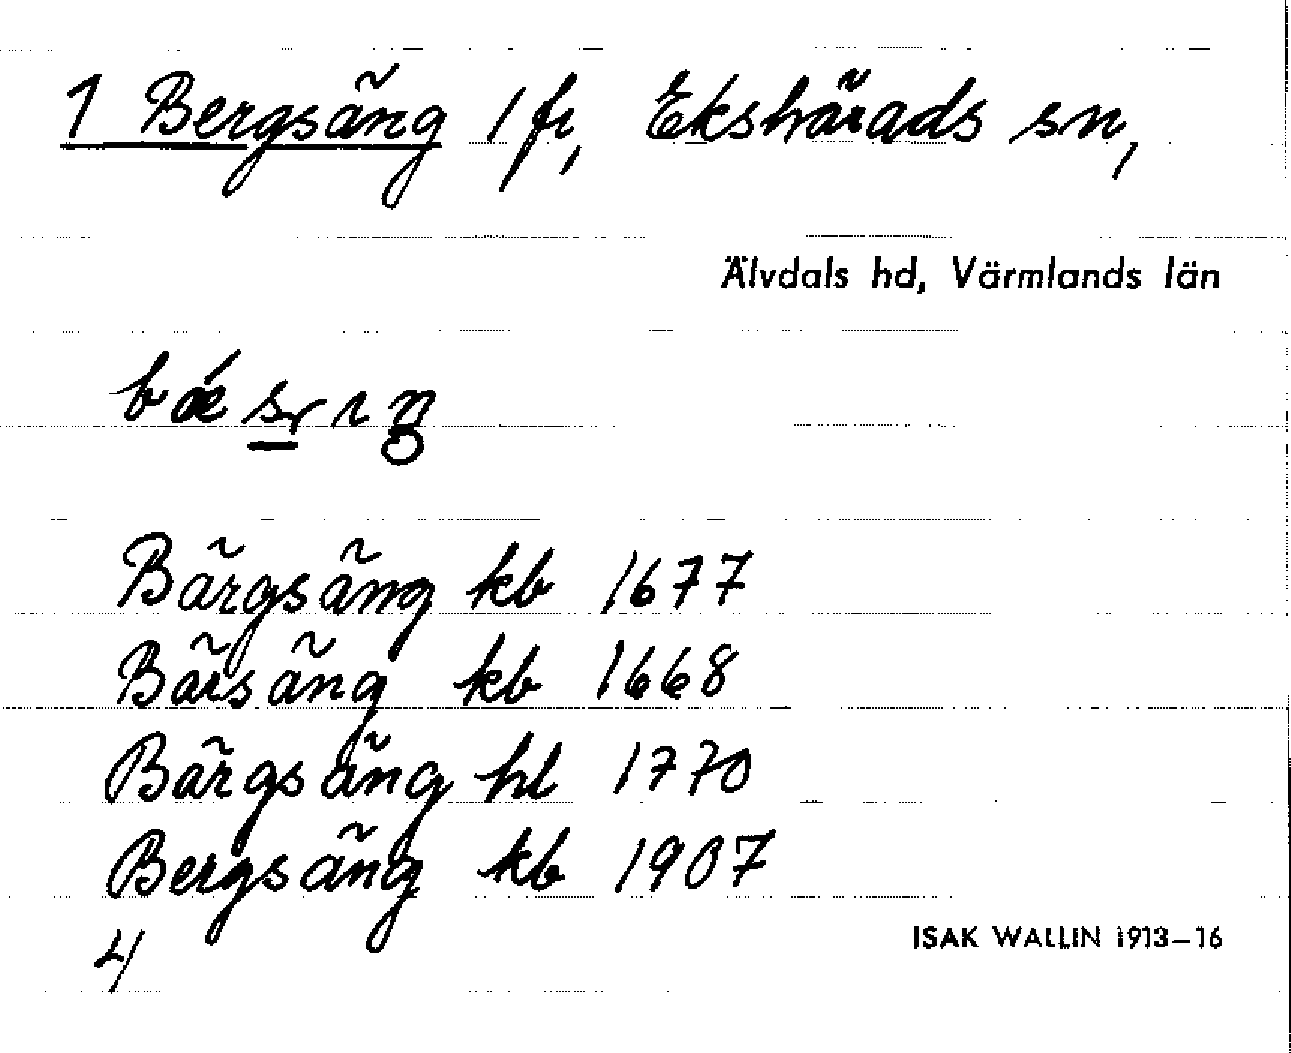 1 Bergsäng 1 fr, Ekshärads sn,
Älvdals hd, Värmlands län
Bärgsäng kb 1677
Bärsäng kb 1668
Bärgsäng hl 1770
Bergsäng kb 1907
4
ISAK WALLIN 1913–16